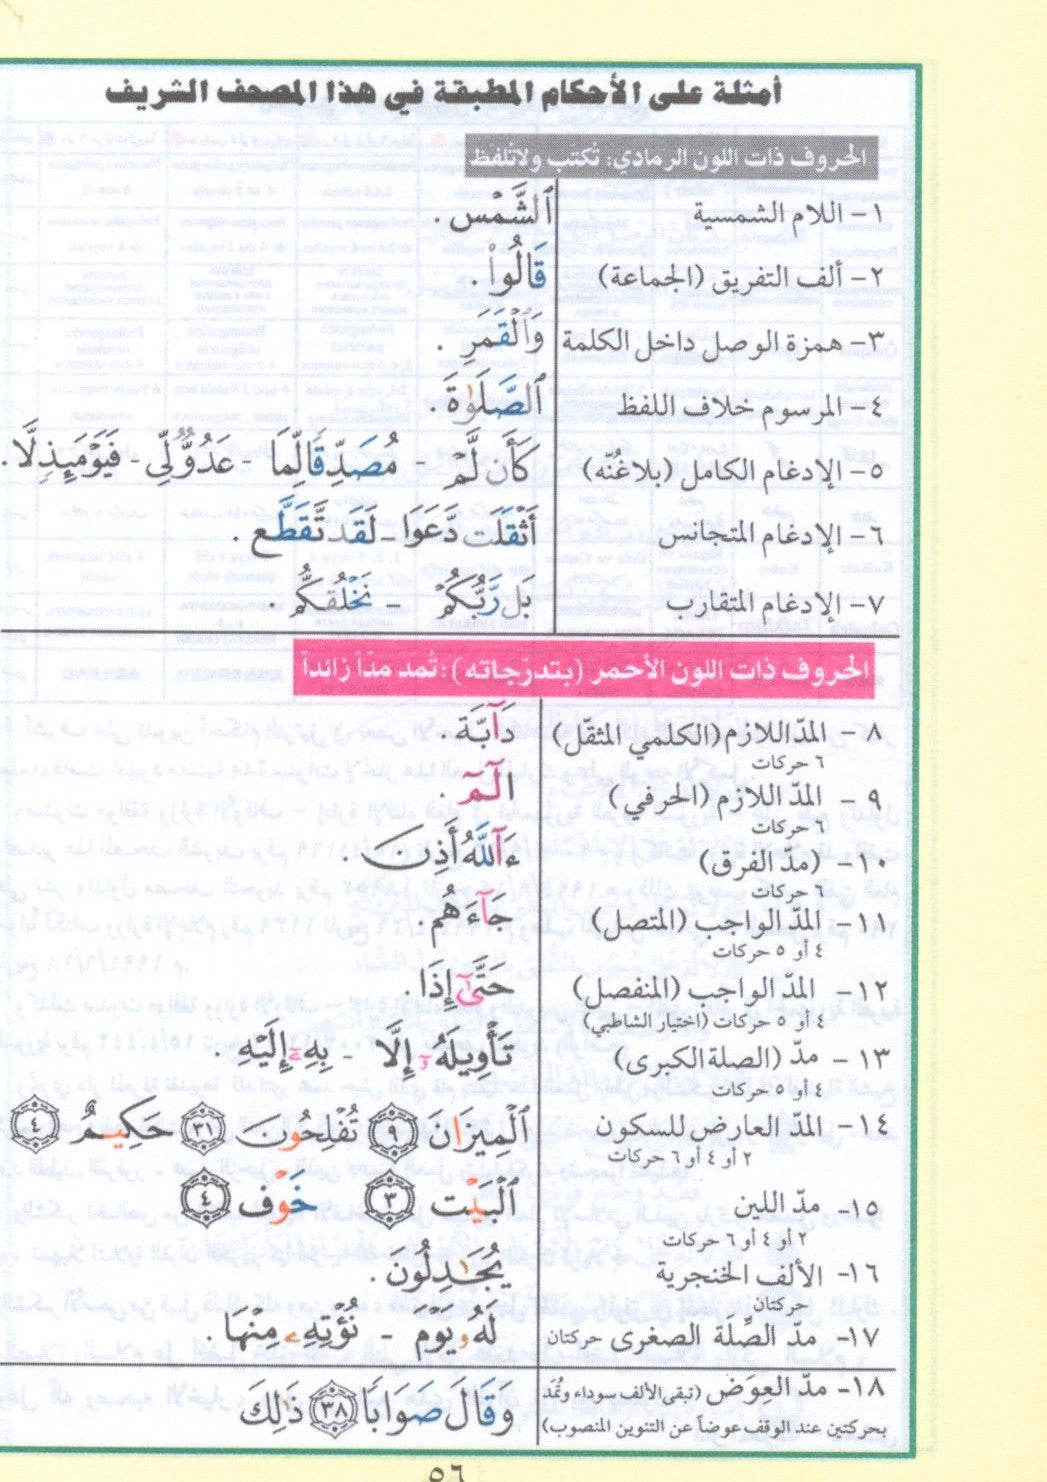 أمثلة على الأحكام المطبقة في هذا المصحف الشريف
الحروف ذات اللون الرمادي: تُكتَب ولاتُلفَظ
١- اللام الشمسية ٱلشَّمْس .
٢- ألف التفريق (الجماعة) قَالُوا۟ .
٣- همزة الوصل داخل الكلمة وَٱلْقَمَرِ .
٤- المرسوم خلاف اللفظ ٱلصَّلَوٰةَ .
٥- الإدغام الكامل (بلاغُنّه) كَأَن لَّمْ - مُصَدِّقًا لِّمَا - عَدُوٌّ لِّى - فَيَوْمَئِذٍ لَّا .
٦- الإدغام المتجانس أَثْقَلَت دَّعَوَا - لَقَد تَّقَطَّع .
٧- الإدغام المتقارب بَل رَّبُّكُمْ - نَخْلُقكُّم .
الحروف ذات اللون الأحمر (بتدرّجاته): تُمَد مدّاً زائداً
٨ - المدّ اللازم (الكلمي المثقّل) دَآبَّة .
٦ حركات
٩ - المدّ اللازم (الحرفي) الٓمٓ .
٦ حركات
١٠ - (مدّ الفرق) ءَآللَّهُ أَذِنَ .
٦ حركات
١١- المدّ الواجب (المتصل) جَآءَهُم .
٤ أو ٥ حركات
١٢ - المدّ الواجب (المنفصل) حَتَّىٰٓ إِذَا .
٤ أو ٥ حركات (اختيار الشاطبي)
١٣ - مدّ (الصلة الكبرى) تَأْوِيلَهُۥٓ إِلَّا - بِهِۦٓ إِلَيْهِ .
٤ أو ٥ حركات
١٤- المدّ العارض للسكون ٱلْمِيزَانَ ٩ تُفْلِحُونَ ٣١ حَكِيمٌ ٤
٢ أو ٤ أو ٦ حركات
١٥- مدّ اللين ٱلْبَيْت ٣ خَوْف ٤
٢ أو ٤ أو ٦ حركات
١٦- الألف الخنجرية يُجَٰدِلُون .
حركتان
١٧- مدّ الصِّلَة الصغرى حركتان لَهُۥ يَوْم - نُؤْتِهِۦ مِنْهَا .
١٨- مدّ العوَض (تبقى الألف سوداء وتُمَد
بحركتين عند الوقف عوضاً عن التنوين المنصوب) وَقَالَ صَوَابًا ٣٨ ذَٰلِكَ
٥٦